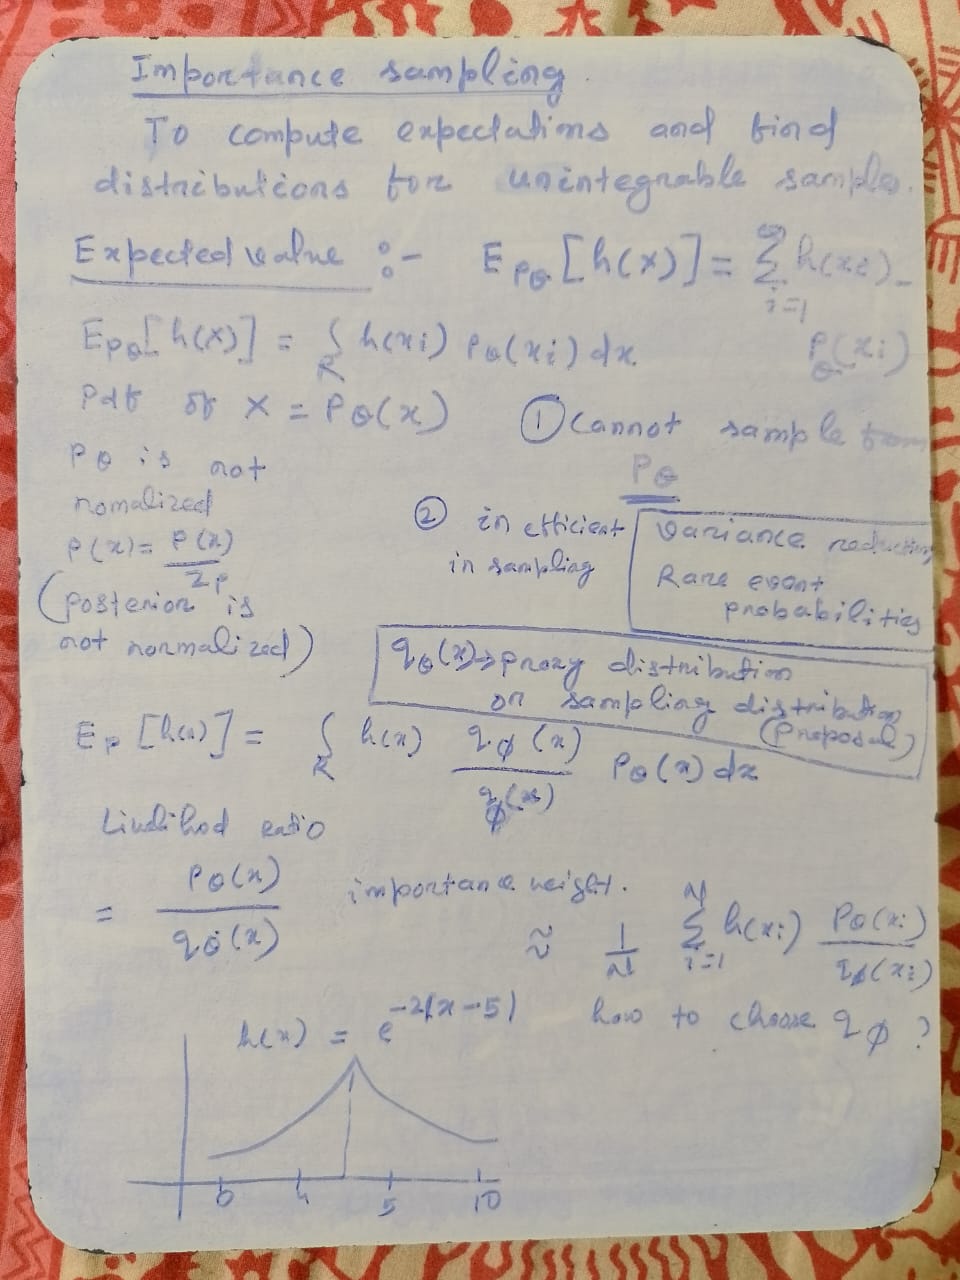 Importance sampling.
To compute expectations and find
distributions for unintegrable samples.
Expected value :- E_{Pθ}[h(x)] = ∑_{i=1}^{∞} h(xi).
P_θ(xi)
E_{Pθ}[h(x)] = ∫_R h(xi) Pθ(xi) dx
Pdf of X = Pθ(x)
① Cannot sample from
Pθ
Pθ is not
nomalized
P(x) = P(x)/Zp
(posterior is
not normalized)
② in efficient
in sampling
Variance reduction
Rare event
probabilities
qθ(x) → proxy distribution
or sampling distribution
(Proposal)
E_P[h(x)] = ∫_R h(x) qϕ(x)/qϕ(x) Pθ(x) dx
Liklihod ratio
= Pθ(x)/qθ(x) importance weight.
≈ 1/N ∑_{i=1}^{N} h(xi) Pθ(xi)/qϕ(xi)
h(x) = e^{-2|x-5|} how to choose qϕ ?
5 10